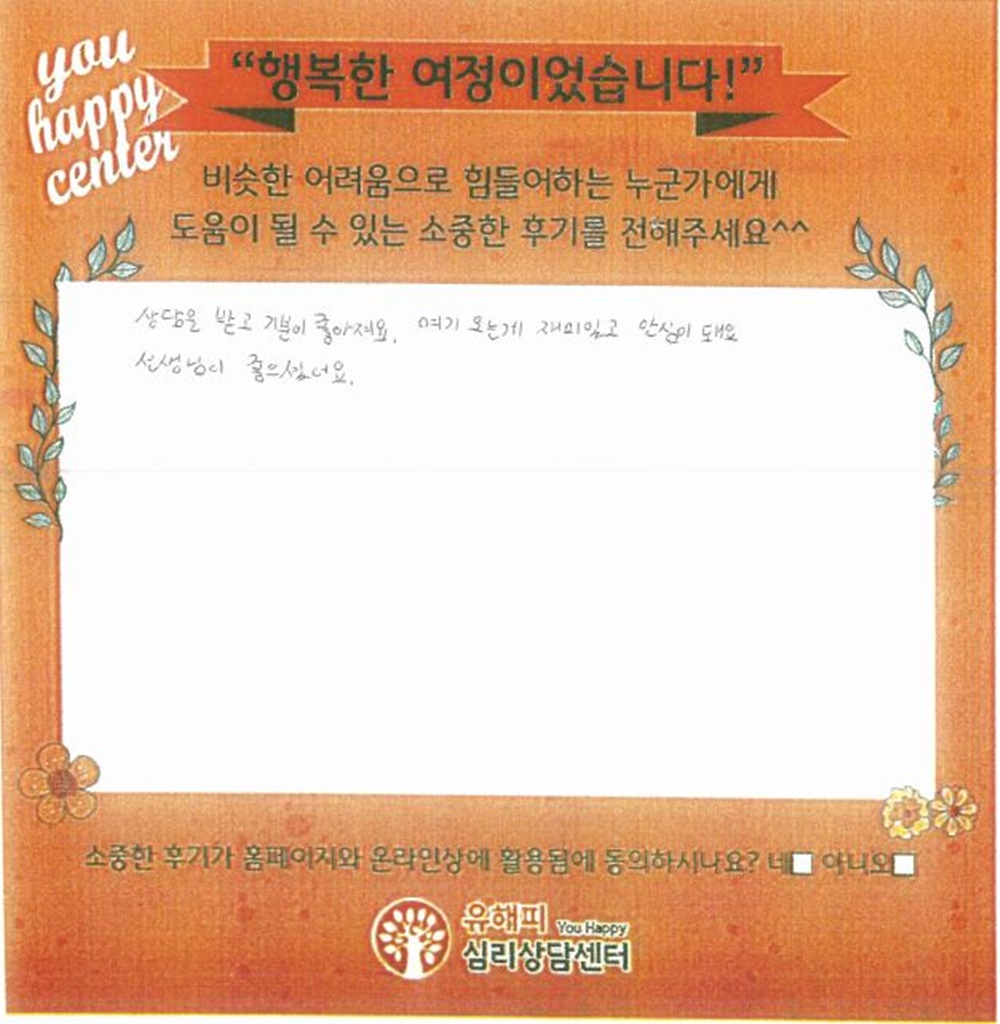 you
happy
center
“행복한 여정이었습니다!”
비슷한 어려움으로 힘들어하는 누군가에게
도움이 될 수 있는 소중한 후기를 전해주세요^^
상담을 받고 기분이 좋아져요. 여기 오는게 재미있고 안심이 돼요
선생님이 좋으셨어요.
소중한 후기가 홈페이지와 온라인상에 활용됨에 동의하시나요? 네 아니오
유해피 You Happy
심리상담센터